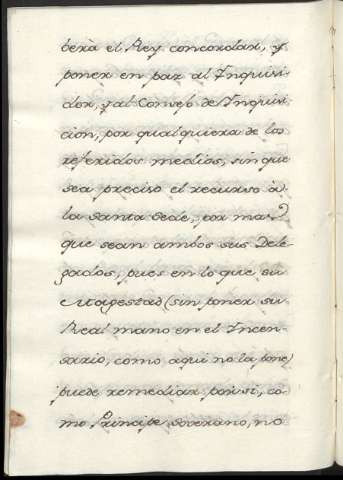 berà el Rey concordar, y
poner en paz al Inquisi-
dor, y al Consejo de Inquisi-
cion, por qualquiera de los
referidos medios, sin que
sea preciso el recurso à
la Santa Sede, por mas
que sean ambos sus Dele-
gados, pues en lo que su
Magestad (sin poner su
Real mano en el Incen-
sario, como aqui no la pone)
puede remediar por si, co-
mo Principe soverano, no